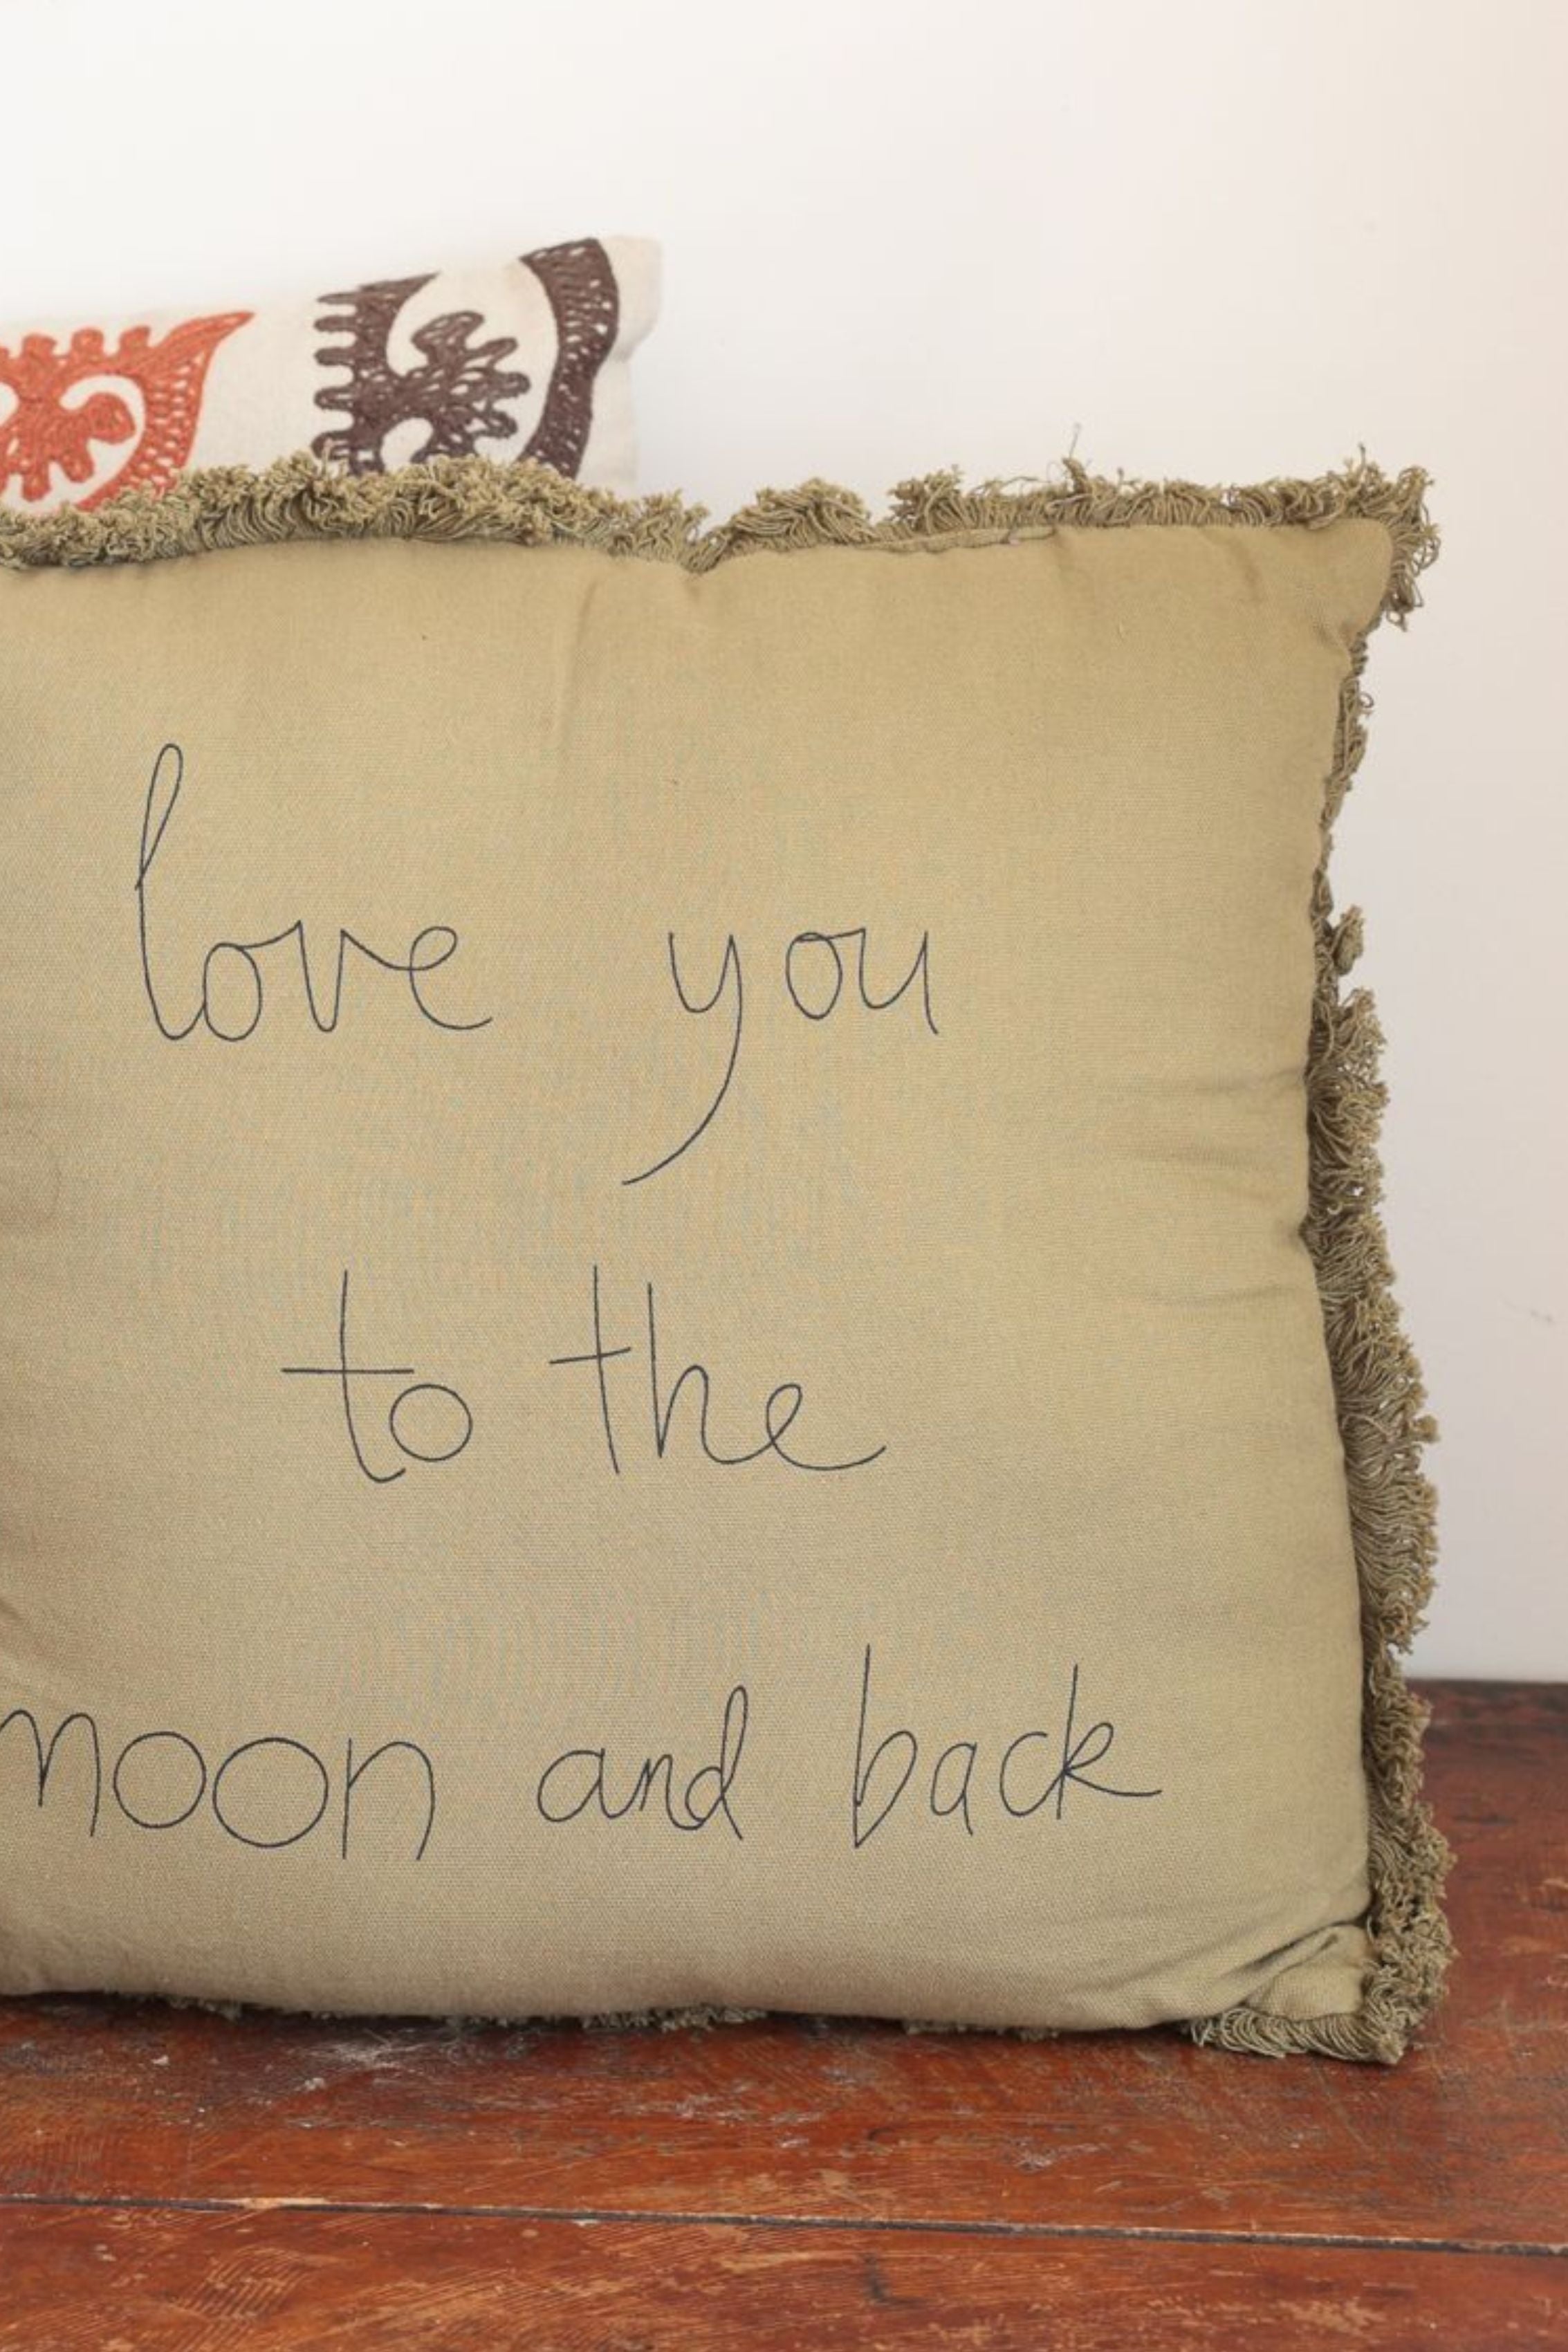 love you
to the
moon and back